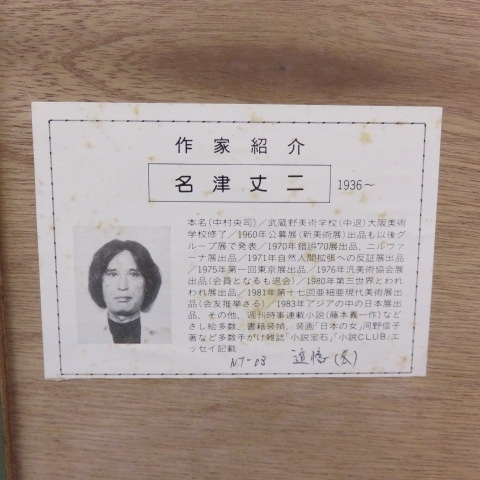 作家紹介
名津丈二
1936~
本名(中村央司)/武蔵野美術学校(中退)大阪美術
学校修了/1960年公募展(新美術展)出品も以後グ
ループ展で発表/1970年錯誤70展出品、ニルヴァ
ーナ展出品/1971年自然人間拡張への反証展出品
/1975年第一回東京展出品/1976年汎美術協会展
出品(会員となるも退会)/1980年第三世界とわれ
われ展出品/1981年第十七回亜細亜現代美術展出
品(会友推挙さる)/1983年アジアの中の日本展出
品、その他、週刊時事連載小説(藤本義一作)など
さし絵多数、書籍装幀、装画「日本の女」河野信子
著など多数手がけ雑誌「小説宝石」「小説CLUB」エ
ッセイ記載
N.T-83 追憶(冬)